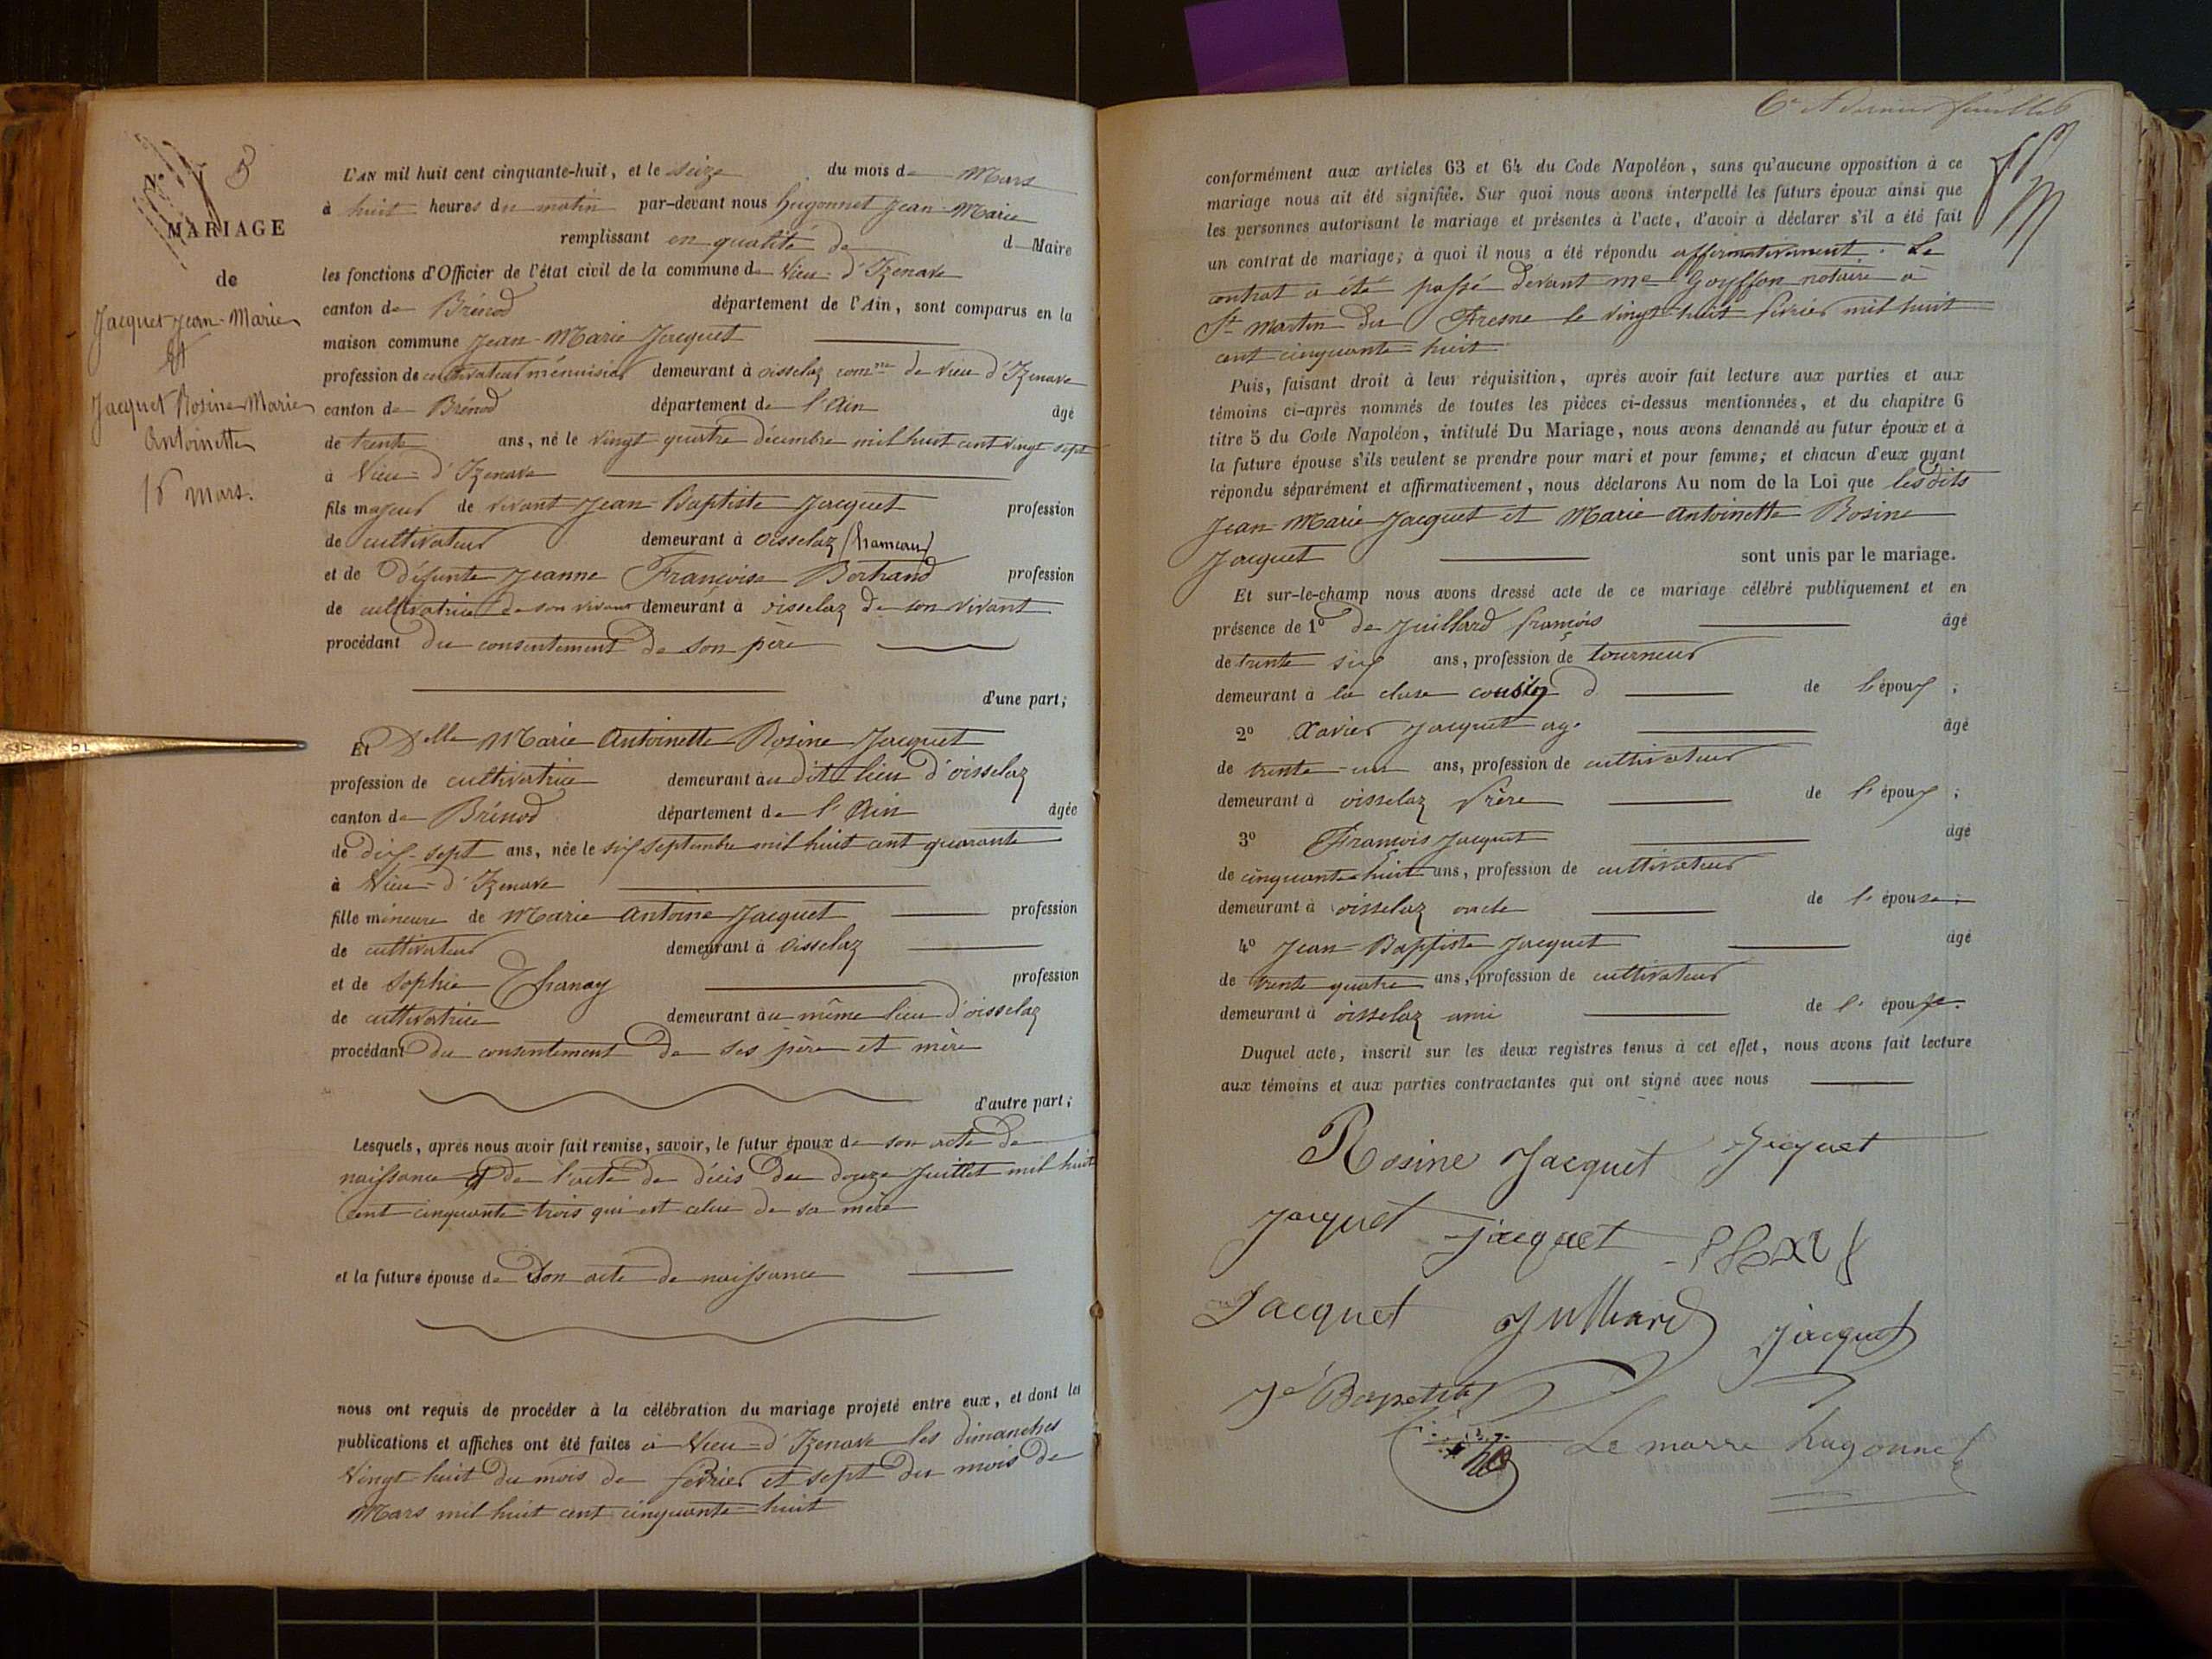 N° 5
MARIAGE
de
Jacquet Jean-Marie
Et
Jacquet Rosine Marie
Antoinette
16 mars.
L'AN mil huit cent cinquante-huit, et le seize du mois de Mars
à huit heures du matin par-devant nous hugonnet Jean-Marie
remplissant en qualité de d Maire
les fonctions d'Officier de l'état civil de la commune de Vieu-d'Izenave
canton de Brénod département de l'Ain, sont comparus en la
maison commune Jean-Marie Jacquet
profession de cultivateur ménuisier demeurant à oisselaz com^ne de vieu d'Izenave
canton de Brénod département de l'Ain âgé
de trente ans, né le vingt quatre décembre mil huit cent vingt-sept
à Vieu-d'Izenave
fils majeur de vivant Jean-Baptiste Jacquet profession
de cultivateur demeurant à oisselaz (hameau)
et de Défunte Jeanne Françoise Bertrand profession
de cultivatrice de son vivant demeurant à oisselaz de son vivant
procédant du consentement de son père
d'une part;
Et D^elle Marie Antoinette Rosine Jacquet
profession de cultivatrice demeurant au dit lieu d'oisselaz
canton de Brénod département de l'Ain âgée
de dix-sept ans, née le six septembre mil huit cent quarante
à Vieu-d'Izenave
fille mineure de Marie Antoine Jacquet profession
de cultivateur demeurant à Oisselaz
et de Sophie Chanay profession
de cultivatrice demeurant au même lieu d'oisselaz
procédant du consentement de ses père et mère
d'autre part;
Lesquels, après nous avoir fait remise, savoir, le futur époux de son acte de
naissance et de l'acte de décès du douze Juillet mil huit
Cent cinquante-trois qui est celui de sa mère
et la future épouse de Son acte de naissance
nous ont requis de procéder à la célébration du mariage projeté entre eux, et dont les
publications et affiches ont été faites à Vieu-d'Izenave les dimanches
Vingt-huit du mois de février et sept du mois de
Mars mil huit cent cinquante-huit
6e et dernier feuillet
conformément aux articles 63 et 64 du Code Napoléon, sans qu'aucune opposition à ce
mariage nous ait été signifiée. Sur quoi nous avons interpellé les futurs époux ainsi que
les personnes autorisant le mariage et présentes à l'acte, d'avoir à déclarer s'il a été fait
un contrat de mariage; à quoi il nous a été répondu affirmativement. Le
contrat a été passé devant me Goyffon notaire à
St martin du Fresne le vingt-huit février mil huit
cent cinquante-huit
Puis, faisant droit à leur réquisition, après avoir fait lecture aux parties et aux
témoins ci-après nommés de toutes les pièces ci-dessus mentionnées, et du chapitre 6
titre 5 du Code Napoléon, intitulé Du Mariage, nous avons demandé au futur époux et à
la future épouse s'ils veulent se prendre pour mari et pour femme; et chacun d'eux ayant
répondu séparément et affirmativement, nous déclarons Au nom de la Loi que les dits
Jean-Marie Jacquet et Marie Antoinette Rosine
Jacquet sont unis par le mariage.
Et sur-le-champ nous avons dressé acte de ce mariage célébré publiquement et en
présence de 1° De Juillard françois âgé
de trente six ans, profession de tourneur
demeurant à la cluse cousin d de l'époux ;
2° Xavier Jacquet ag. âgé
de trente-un ans, profession de cultivateur
demeurant à oisselaz frère de l'époux ;
3° François Jacquet âgé
de cinquante-huit ans, profession de cultivateur
demeurant à oisselaz oncle de l'épouse ;
4° Jean-Baptiste Jacquet âgé
de trente quatre ans, profession de cultivateur
demeurant à oisselaz ami de l'épouse.
Duquel acte, inscrit sur les deux registres tenus à cet effet, nous avons fait lecture
aux témoins et aux parties contractantes qui ont signé avec nous
Rosine Jacquet Jacquet
Jacquet Jacquet
Jacquet Julliard Jacquet
Le marre hugonnet